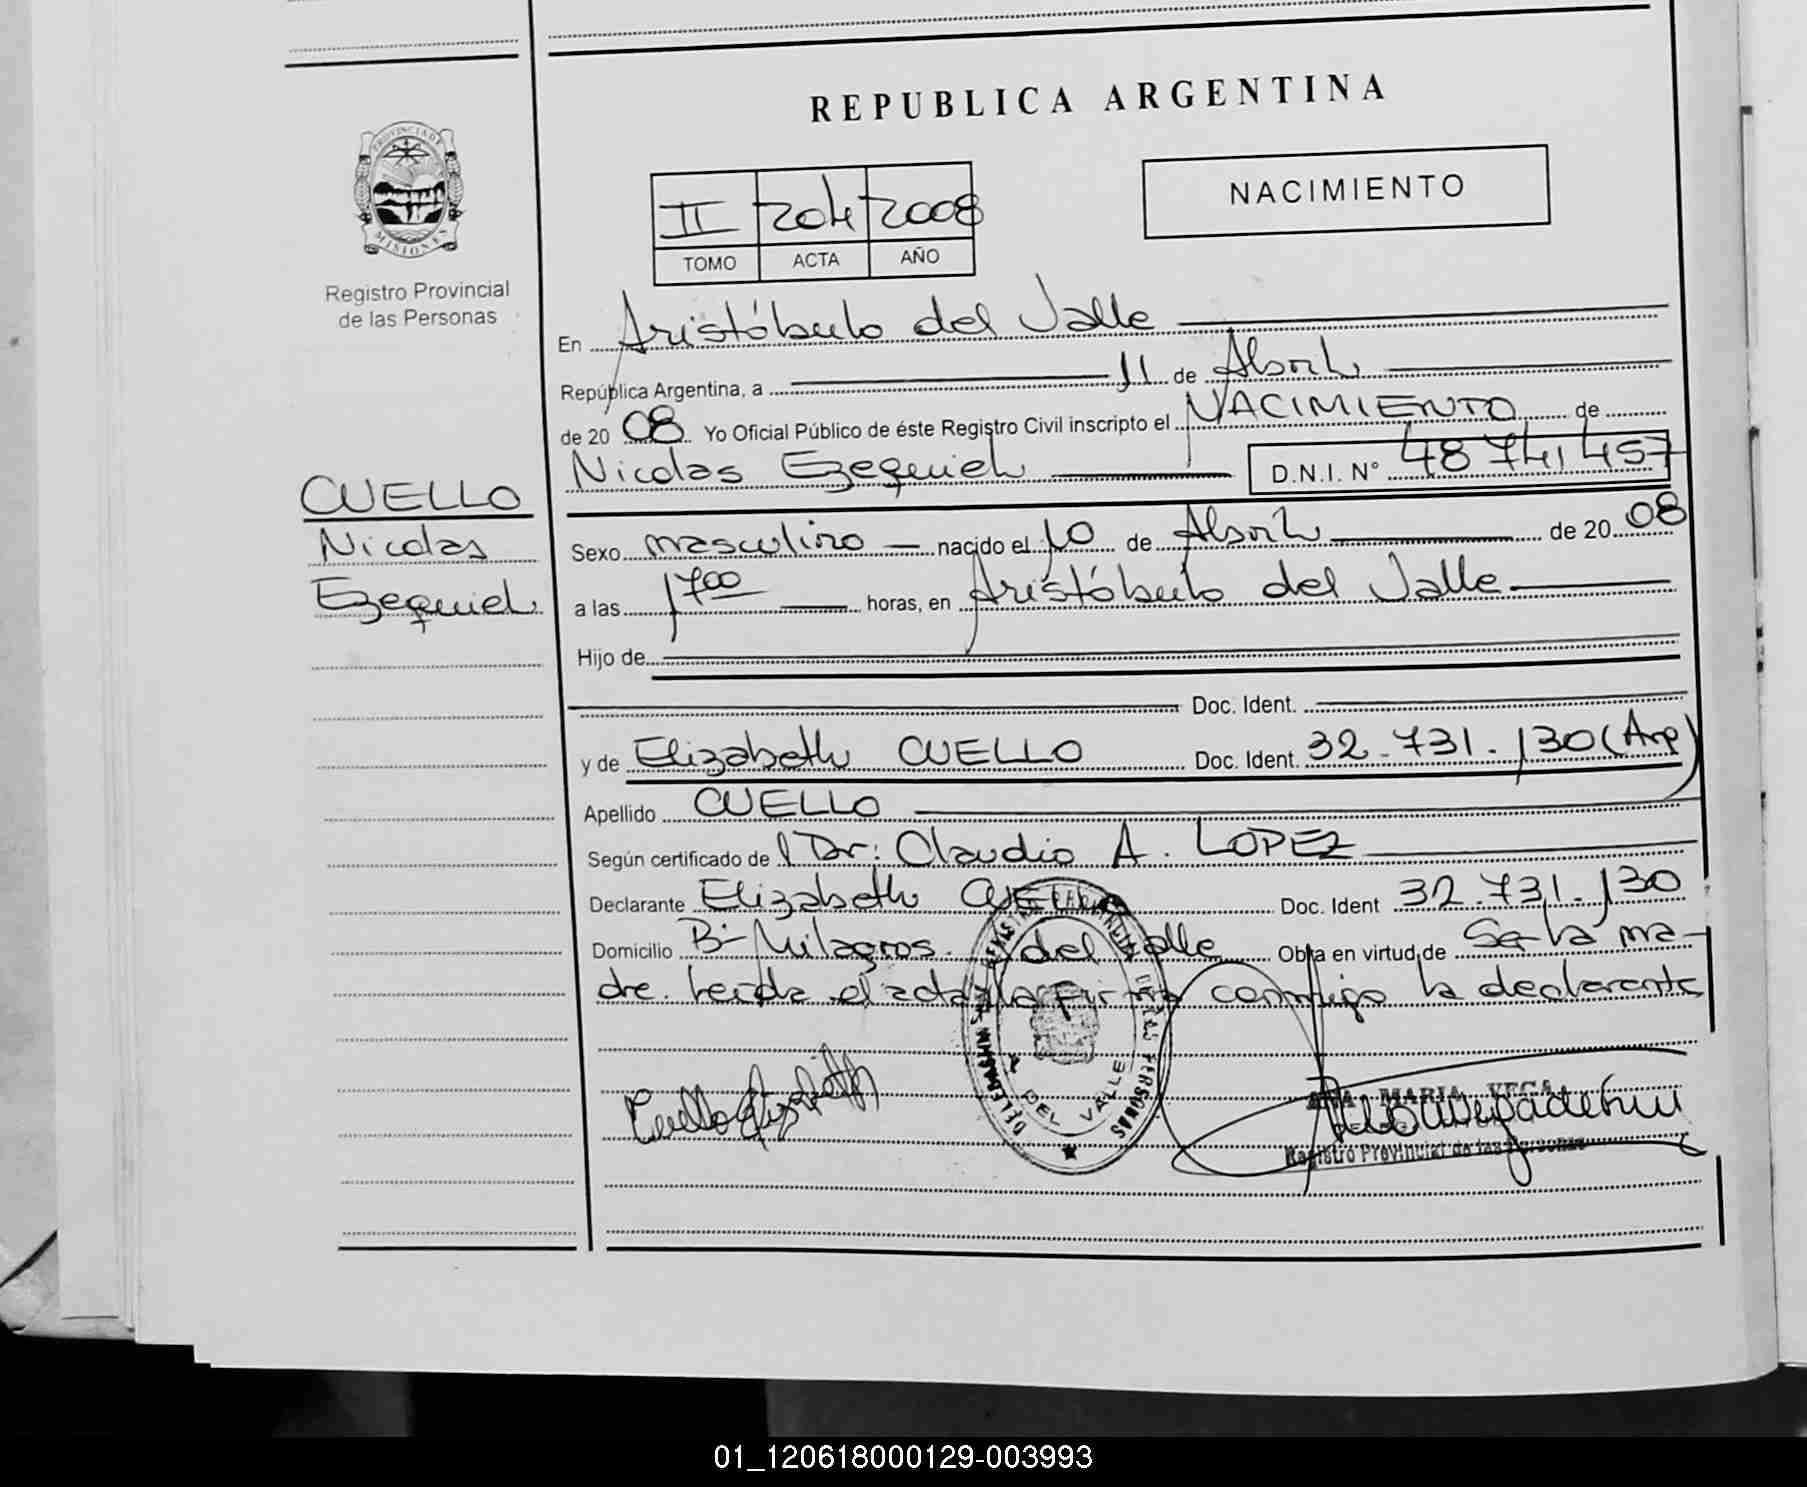 REPUBLICA ARGENTINA
PROVINCIA DE
MISIONES
Registro Provincial
de las Personas
II 204 2008
TOMO ACTA AÑO
NACIMIENTO
En Aristóbulo del Valle
República Argentina, a 11 de Abril
de 20 08 Yo Oficial Público de éste Registro Civil inscripto el NACIMIENTO de
Nicolas Ezequiel D.N.I. N° 48 741 457
CUELLO
Nicolas
Ezequiel
Sexo masculino nacido el 10 de Abril de 20 08
a las 1700 horas, en Aristóbulo del Valle
Hijo de
Doc. Ident.
y de Elizabeth CUELLO Doc. Ident. 32.731.130 (Arg)
Apellido CUELLO
Según certificado de Dr: Claudio A. LOPEZ
Declarante Elizabeth CUELLO Doc. Ident 32.731.130
Domicilio B- Milagros. del Valle Obra en virtud de Ser la ma-
dre. Leida el acta la firma conmigo la declarante
Cuello Elizabeth
DEL VALLE
DE LAS PERSONAS
ANA MARIA VEGA
Registro Provincial de las Personas
01_120618000129-003993